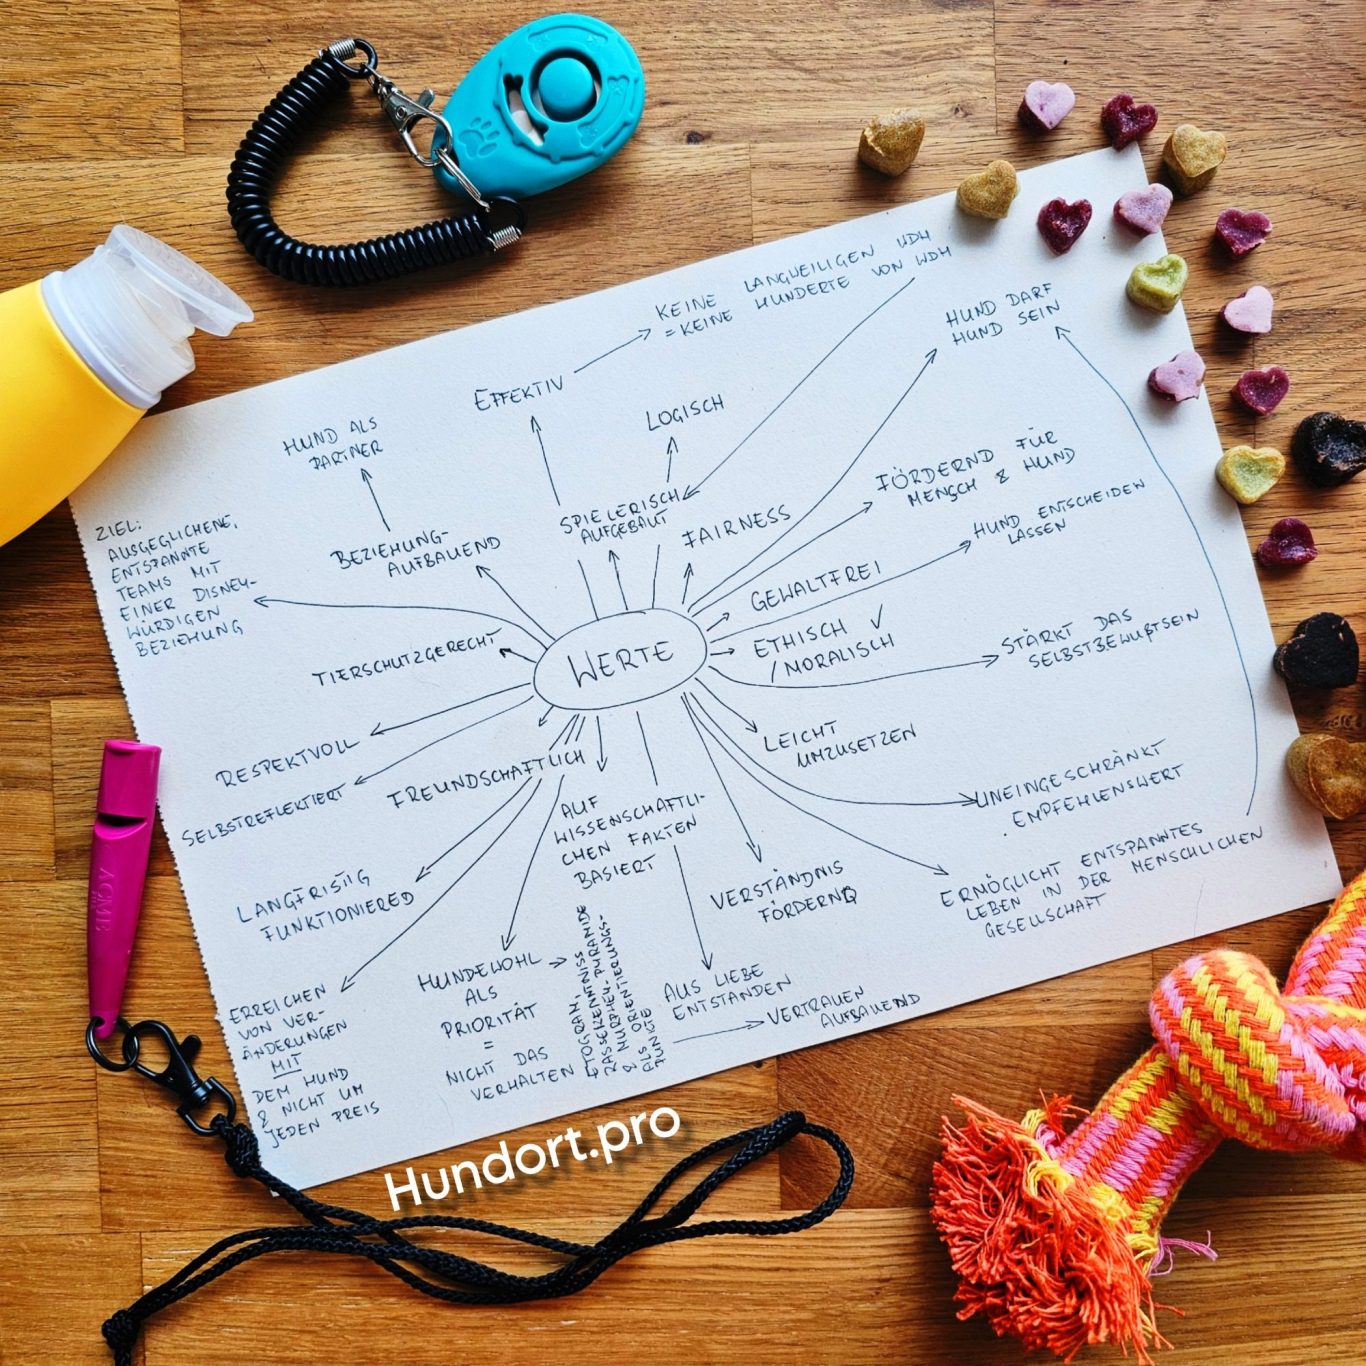 KEINE LANGWEILIGEN WDH
= KEINE HUNDERTE VON WDH
HUND DARF
HUND SEIN
EFFEKTIV
LOGISCH
HUND ALS
PARTNER
SPIELERISCH
AUFGEBAUT
FAIRNESS
FÖRDERND FÜR
MENSCH & HUND
HUND ENTSCHEIDEN
LASSEN
ZIEL:
AUSGEGLICHENE,
ENTSPANNTE
TEAMS MIT
EINER DISNEY-
WÜRDIGEN
BEZIEHUNG
BEZIEHUNG-
AUFBAUEND
GEWALTFREI
ETHISCH ✓
/MORALISCH
STÄRKT DAS
SELBSTBEWUßTSEIN
TIERSCHUTZGERECHT
WERTE
RESPEKTVOLL
SELBSTREFLEKTIERT
FREUNDSCHAFTLICH
LEICHT
UMZUSETZEN
UNEINGESCHRÄNKT
EMPFEHLENSWERT
AUF
WISSENSCHAFTLI-
CHEN FAKTEN
BASIERT
LANGFRISTIG
FUNKTIONIERED
VERSTÄNDNIS
FÖRDERND
ERMÖGLICHT ENTSPANNTES
LEBEN IN DER MENSCHLICHEN
GESELLSCHAFT
ERREICHEN
VON VER-
ÄNDERUNGEN
MIT
DEM HUND
& NICHT UM
JEDEN PREIS
HUNDEWOHL
ALS
PRIORITÄT
=
NICHT DAS
VERHALTEN
ETOGRAM,
RASSEKENNTNISS
& MURPHEH-PYRAMIDE
ALS ORIENTIERUNGS-
PUNKTE
AUS LIEBE
ENTSTANDEN
VERTRAUEN
AUFBAUEND
ACME
Hundort.pro